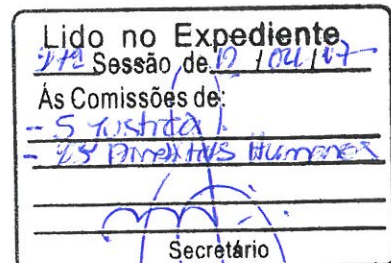 Lido no Expediente
Sessão de 12 / 04 / 17
Às Comissões de:
- 5 Justiça
- 25 Direitos Humanos
Secretário